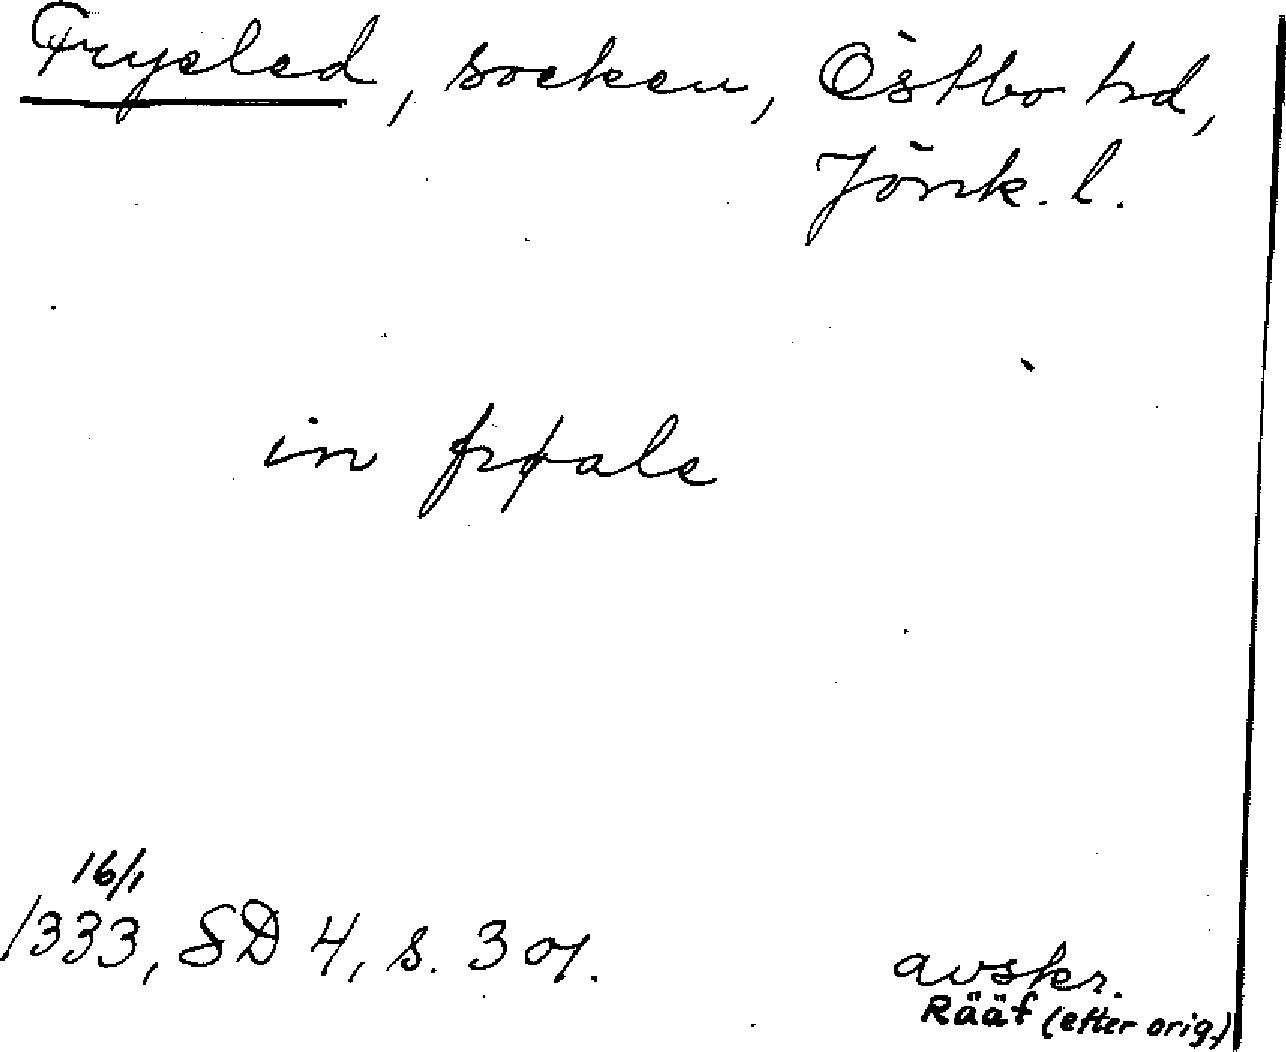 Fryeled, socken, Östbo hd,
Jönk. l.
in frøale
16/1
1333, SD 4, s. 301.
avskr.
Rääf (efter orig.)